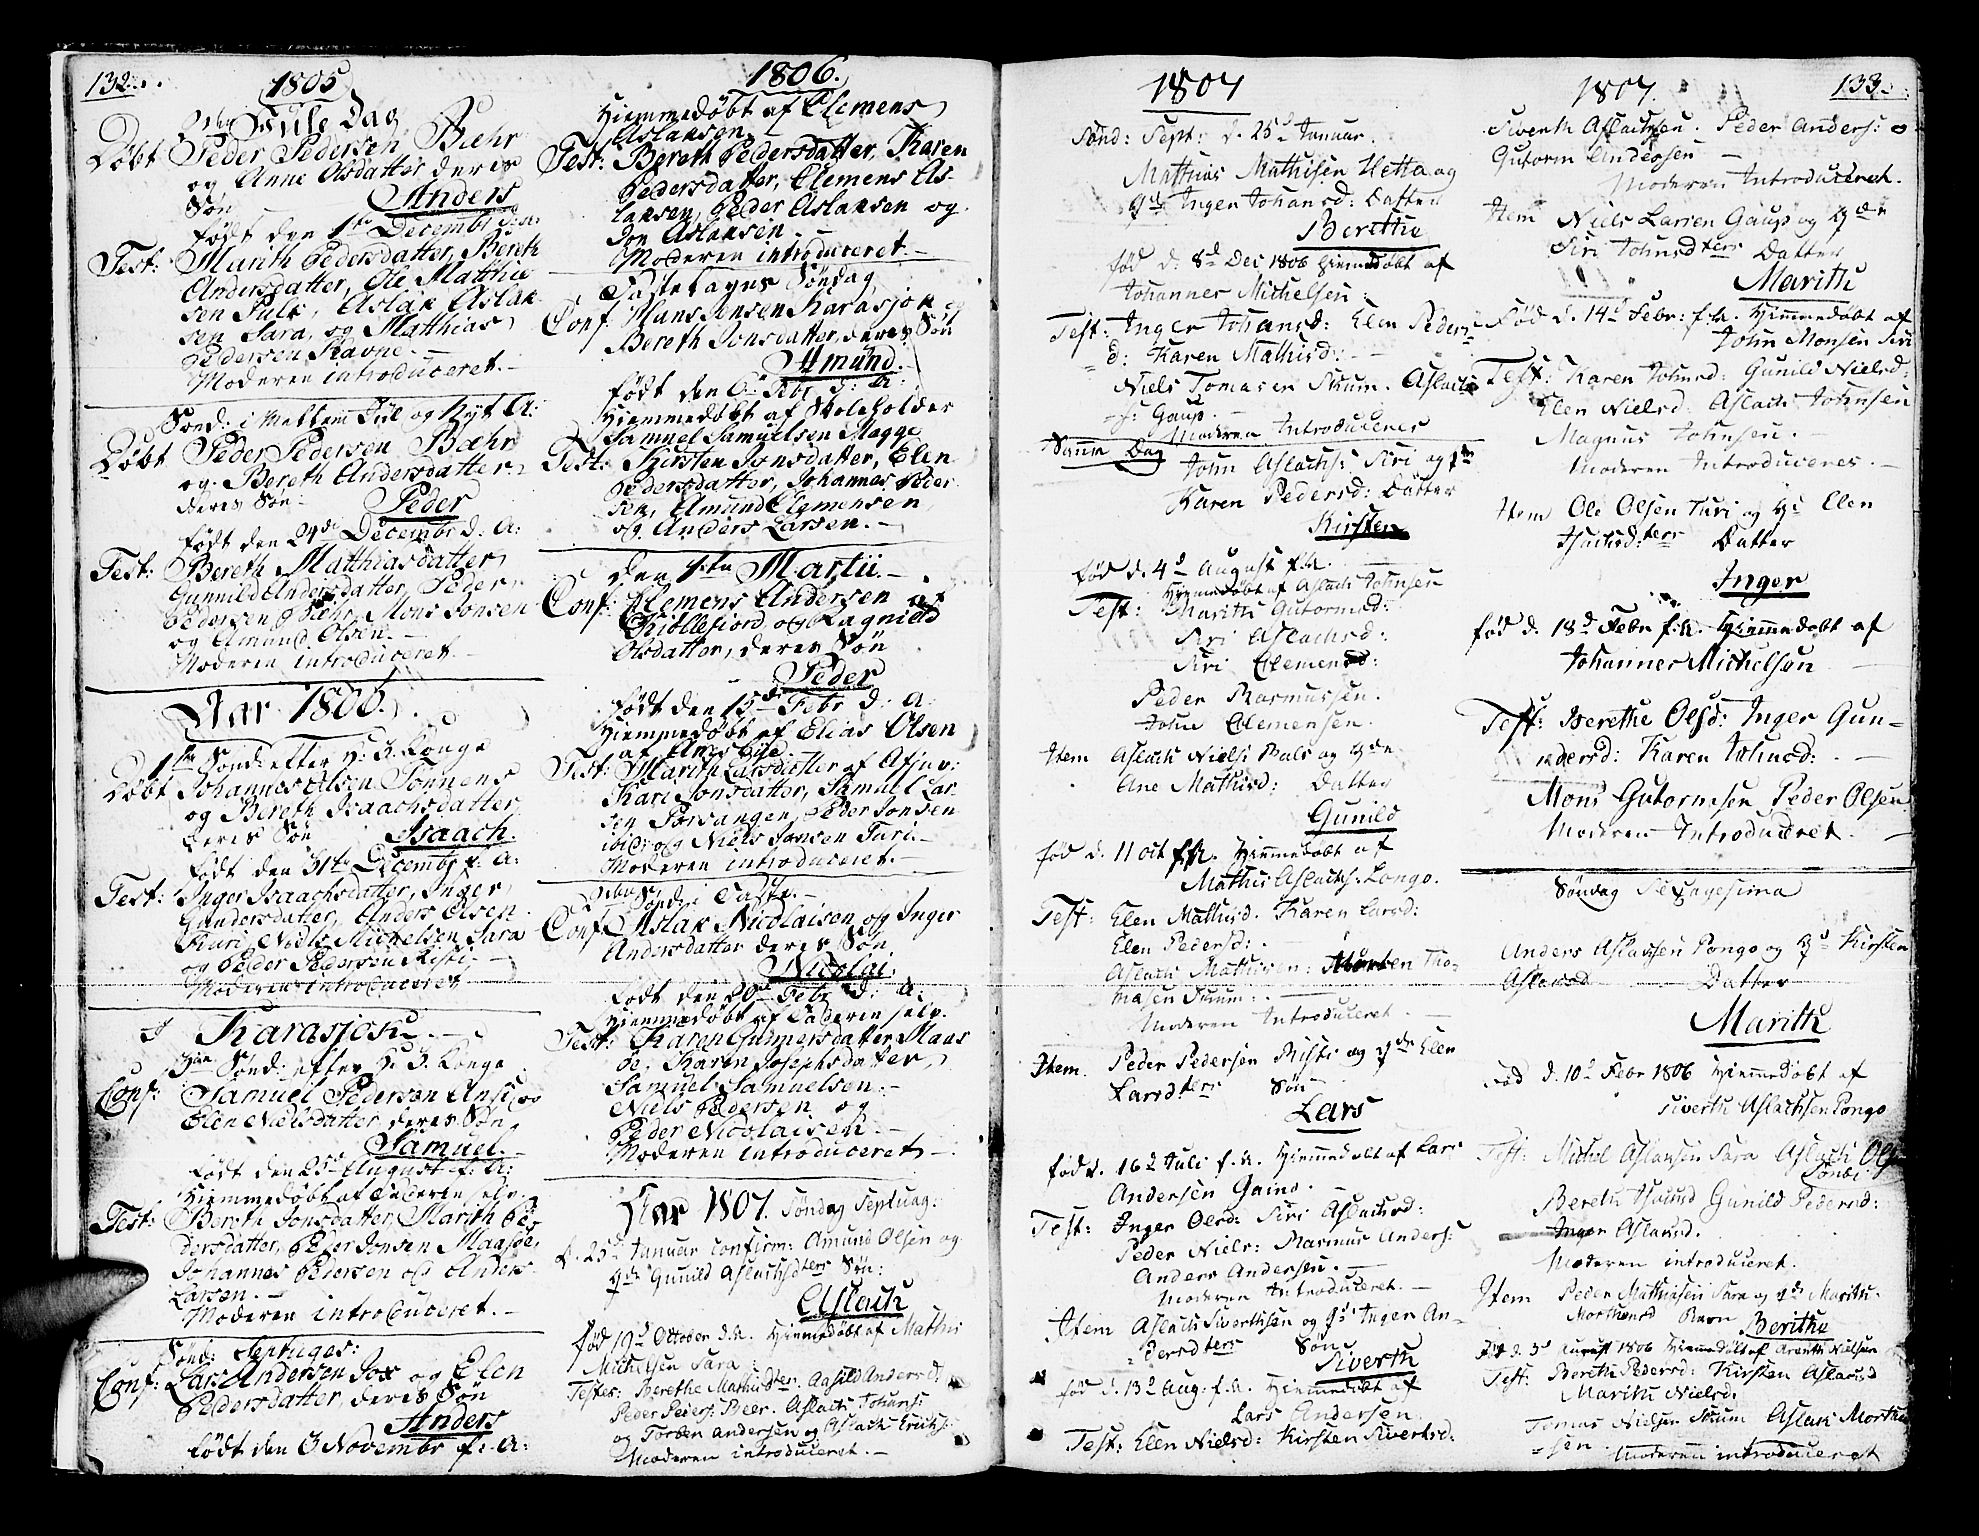 132.
1805
2den Jule Dag
Døbt Peder Pedersen Bæhr
og Anne Olsdatter deres
Søn Anders
født den 1te Decembr
Test: Marith Pedersdatter, Bereth
Andersdatter, Ole Matthis
sen Puls, Aslak Aslak
sen Sara, og Matthias
Pedersen Ravne.
Moderen introduceret.
Sønd: i Mellem Jul og Nyt A:
Døbt Peder Pedersen Bæhr
og Bereth Andersdatter
deres Søn Peder
født den 24de Decembr d. A:
Test: Bereth Matthiasdatter
Gunnild Andersdatter, Peder
Pedersen Bæhr, Mons Jonsen
og Amund Olsen.
Moderen introduceret.
Aar 1806.
1te Sønd: efter H: 3 Konge
Døbt Johannes Olsen Sonnens
og Bereth Isaachsdatter
deres Søn Isaach.
født den 31te Decembr f: A:
Test: Inger Isaachsdatter, Inger
Gundersdatter, Anders Olsen
Kari, Niels Michelsen Sara
og Peder Pedersen Risti.
Moderen introduceret
Karasjok
3die Sønd: efter H: 3 Konge
Conf: Samuel Pedersen og
Elen Nielsdatter deres Søn
Samuel.
født den 25de August f: A:
Hiemmedøbt af Faderen selv.
Test: Bereth Jonsdatter, Marith Pe
dersdatter, Peder Jonsen Maasøe,
Johannes Pedersen og Anders
Larsen.
Moderen introduceret.
Sønd: Septuges:
Conf: Lars Andersen Jox og Elen
Pedersdatter, deres Søn
Anders
født den 6 Novembr f: A:
1806.
Hiemmedøbt af Clemens
Aslaksen
Test: Bereth Pedersdatter, Karen
Pedersdatter, Clemens As-
laksen, Peder Aslaksen og
Jon Aslaksen
Moderen introduceret.
Fastelagns Søndag
Conf: Hans Jensen Karasjok og
Bereth Jonsdatter, deres Søn
Amund.
født den 6te Febr d: A:
Hiemmedøbt af Skoleholder
Samuel Samuelsen Magge
Test: Kirsten Jonsdatter, Elen
Pedersdatter, Johannes Peder
sen, Amund Clemensen
og Anders Larsen.
den 1te Martii.
Conf: Clemens Andersen af
Kiøllefiord og Ragnild
Olsdatter, deres Søn
Peder
født den 15de Febr d: A:
Hiemmedøbt af Elias Olsen
Test: Marith Larsdatter af
Kari Jonsdatter, Samuel Lar
sen Porsangen, Peder Jonsen
ibid: og Niels Jonsen Tari.
Moderen introduceret.
2den Sønd: i Faste.
Conf: Aslak Nicolaisen og Inger
Andersdatter deres Søn
Nicolai.
født den 20de Febr d: A:
Hiemmedøbt af Faderen selv.
Test: Karen Gunnersdatter Maas
øe, Karen Josephsdatter,
Samuel Samuelsen.
Niels Pedersen og
Peder Nicolaisen.
Moderen introduceret.
Aar 1807. Søndag Septuag:
d. 25d Januar confirm: Amund Olsen og
Qde Gunild Aslachsdters Søn:
Aslach
fød 19d October d.A. Hiemmedøbt af Mathis
Michelsen Sara:
Testes: Berethe Mathisdter. Aasild Andersd.
Peder Peders: Beer. Aslach Johans:
og Torben Andersen og Aslach Erichs:
Moderen introduceret.
1807
Sønd: Sept: d. 25d Januar.
Mathias Mathisen Hetta og
Qde Inger Johansd: Datter
Berithe
fød d. 8d Dec 1806 Hiemmedøbt af
Johannes Michelsen:
Test: Inger Johansd: Elen Peders
d: Karen Mathisd:
Niels Tomasen Skum. Aslach
s: Gaup.
Moderen Introduceres
Samme Dag
John Aslachs: Siri og Qde
Karen Pedersd: Datter
Kirsten
fød d. 4d August f.A.
Hiemmedøbt af Aslach Johnsen
Test: Marith Gutormsd:
Siri Aslachsd:
Siri Clemensd:
Peder Rasmussen.
John Clemensen.
Item Aslach Niels: Bals og Qde
Ane Mathisd: Datter
Gunild
fød d. 11 oct f.A. Hiemmedøbt af
Mathis Aslachs: Longo.
Test: Elen Mathisd. Karen Larsd:
Elen Pedersd:
Aslach Mathisen: Morten Tho-
masen Skum:
Moderen Introduceret.
Item. Peder Pedersen Risti og Qde Elen
Larsdters Søn
Lars
fød d. 16d Juli f.A. Hiemmedøbt af Lars
Andersen Gaino.
Test: Inger Olsd: Siri Aslachsd:
Peder Niels: Rasmus Anders:
Anders Andersen.
Moderen Introduceret.
Item Aslach Siverthsen og Qd: Inger An-
dersdters Søn
Siverth
fød d. 13d Aug. f.A. Hiemmedøbt af
Lars Andersen.
Test: Elen Nielsd: Kirsten Siverksd:
1807. 133.
Siverth Aslachsen. Peder Anders: o
Gutorm Andersen
Moderen Introduceret.
Item Niels Larsen Gaup og Qde
Siri Johnsdters Datter
Marith
Fød d. 14d Febr: f.A. Hiemmedøbt af
John Monsen Siri
Test: Karen Johnsd: Gunild Nielsd:
Elen Nielsd: Aslach Johnsen
Magnus Johnsen.
Moderen Introduceres.
Item Ole Olsen Turi og Qd Elen
Isachsd:ters Datter
Inger
fød d. 18d Febr f.A. Hiemmedøbt af
Johannes Michelsen
Test: Berethe Olsd: Inger Gun-
nersd: Karen Johnsd:
Mons Gutormsen Peder Olsen
Moderen Introduceret.
Søndag Sexagesima
Anders Aslachsen Pongo og Qd Kirsten
Aslachsd Datter
Marith
Fød d. 10d Febr 1806 Hiemmedøbt af
Siverth Aslachsen Pongo
Test: Michel Aslaksen Sara Aslach Ols
Bereth Gunild Pedersd:
Inger Aslaksd.
Moderen introduceret.
Item Peder Mathisen Sara og Qde Marith
Mortensd Barn Berithe
Fød d. 3d August 1806 Hiemmedøbt af Nielsen
Test: Bereth Pedersd: Kirsten Aslaksd
Marith Nielsd:
Tomas Nielsen Skum Aslach Morthen
sen.
Moderen introduceret